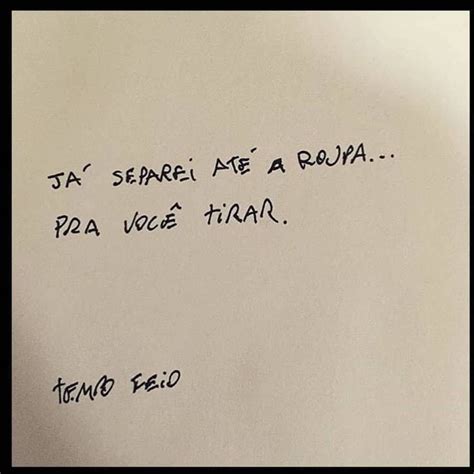 JÁ SEPAREI ATÉ A ROUPA...
PRA VOCÊ TIRAR.
TEMPO FEIO